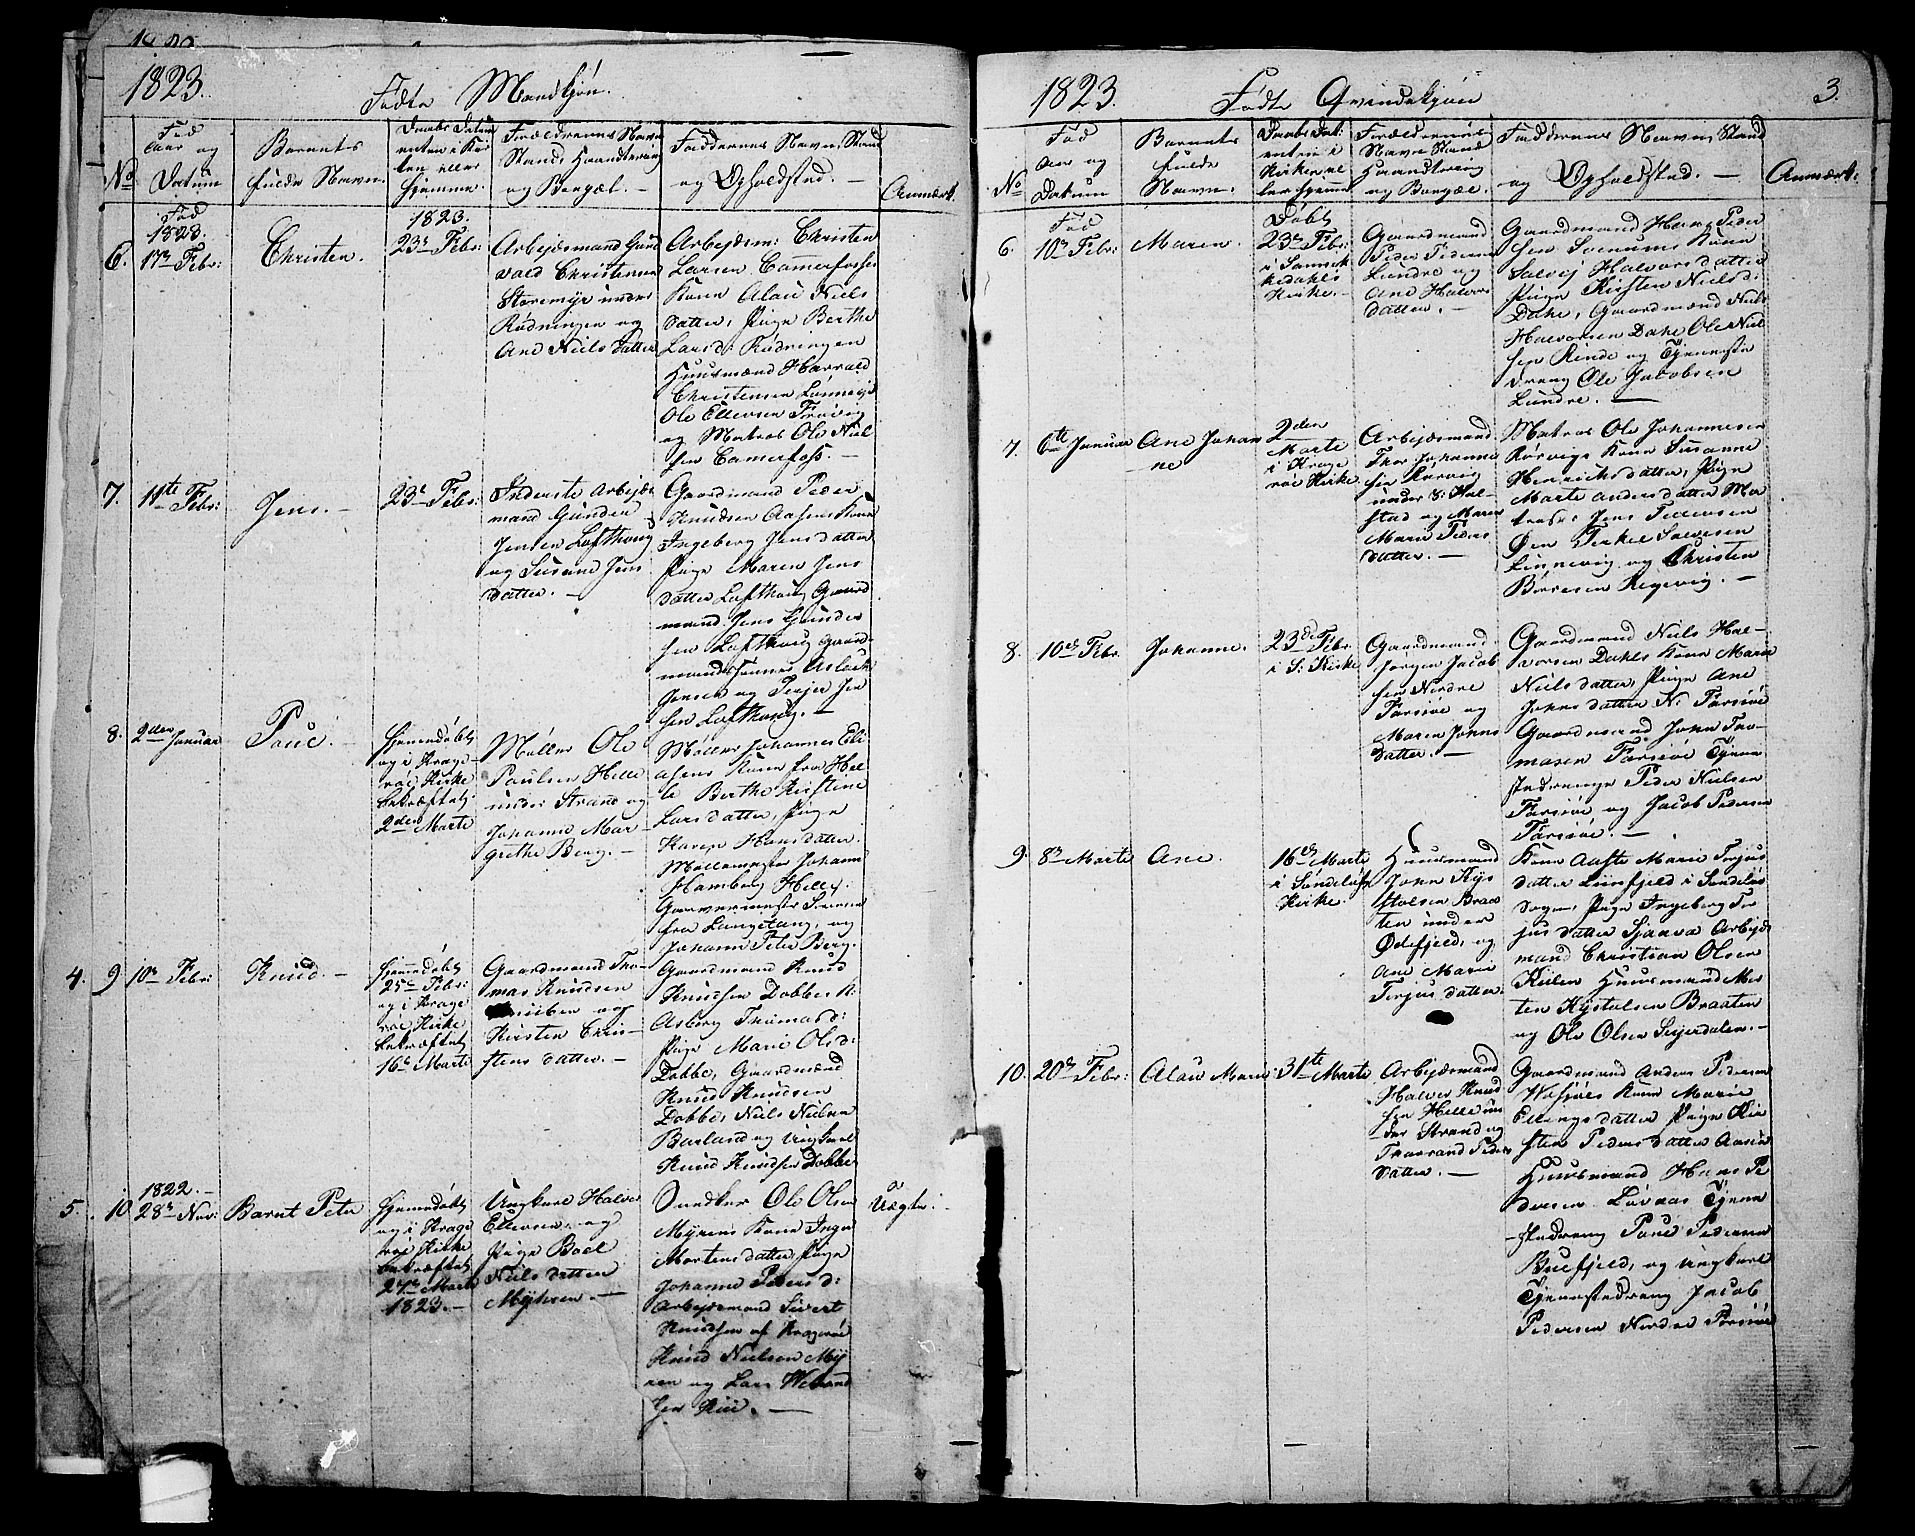 1823.
Fødte Mandkjøn.
No
Fød
Aar og
Datum
Barnets
fulde Navn.
Daabs Datum
enten i Kir
ken eller
hjemme.
Forældrenes Navn
Stand, Haandtering
og Bopæl. -
Faddernes Navn, Stand
og Opholdsted. -
Anmærk.
6.
Fød
1823.
17de Febr:
Christen.
1823.
23de Febr:
Arbejdsmand Gun
vald Christensen
Støremyr under
Rødningen og
Ane Niels datter
Arbejdsm: Christen
Larsen Camerfosses
Kone Alau Niels
datter, Pige Berthe
Larsd: Rødningen
Huusmænd Harrald
Christensen Lønnevje
Ole Ellevsen
og Matros Ole Niel
sen Camerfoss. -
7.
11te Febr:
Jens. -
23de Febr:
Inderste Arbejds
mand Gunder
Jensen Lofthoug
og Susane Jens
datter. -
Gaardmand Peder
Knudsen Aasens Kone
Ingeborg Jens datter
Pige Maren Jens
datter Lofthoug Gaard
mand Jens Gunder
sen Lofthoug Gaard-
mands Sønner Aslack
Jensen og Terjer Jen
sen Lofthoug. -
8.
2den Januar
Poul. -
Hjemmedøbt
og i Krage-
røe Kirke
bekræftet
2den Marts
Møller Ole
Paulsen Helle
under Strand og
Johanne Mar-
grethe Berg. -
Møller Johannes Eli
asens Kone fra Hel
le Berthe Kirstine
Lars datter, Pige
Karen Hansdatter.
Møllemester Johann
Hamborg Helle,
Garvermester
fra Langetang, og
Johann Peter Berg.
4.
9
10de Febr:
Knud. -
Hjemmedøbt
25de Febr:
og i Krage
røe Kirke
bekræftet
16de Marts
Gaardmand Tho-
mas Knudsen
og
Kirsten Chri-
stens datter. -
Gaardmand Knud
Knudsen Dobbes K:
Asberg Thomasd:
Pige Marie Olsd:
Dobbe, Gaardmænd
Knud Knudsen
Dobbe, Niels Nielsen
Barland og Ungkarl
Knud Knudsen Dobbe
5.
10.
1822. -
28de Nov:
Barnt Peter
Hjemmedøbt
og i Krage
røe Kirke
bekræftet
24de Marts
1823. -
Ungkarl Halvor
Ellevsen og
Pige Boel
Niels datter
Myhren. -
Snedker Ole Olsen
Myrens Kone Inger
Mortens datter, Pige
Johanne Peders d:
Arbejdsmand Sivert
Knudsen af Kragerøe
Knud Nielsen My
ren og Lars
sen
Uægte. -
1823.
Fødte Qvindekjøn
3.
No
Fød
Aar og
Datum
Barnets
fulde
Navn.
Daabs Dat:
enten i
Kirken el
ler hjemme
Forældrenes
Navn Stand
Haandtering
og Bopæl. -
Faddernes Navn, Stand
og Opholdsted. -
Anmærk:
6.
Fød
10de Febr:
Maren.
Døbt
23de Febr:
i Sannik
kedals
Kirke. -
Gaardmand
Peder Pedersen
Lundre og
Ane Halvors
datter. -
Gaardmand Hans Peder
sen Kone
Salvej Halvors datter
Pige Kirsten Nielsd:
Dahe, Gaardmænd Niels
Halvorsen Dahe Ole Niel
sen Rinde og Tjeneste
dreng Ole Jacobsen
Lundre. -
7.
6te Januar
Ane Johan
ne
2den
Marts
i Krage
røe Kirke
Arbejdsmand
Thor Johanne
sen Rørvig
under S: Kal-
stad og Maren
Marie Peders
datter. -
Matros Ole Johannesen
Rørvigs Kone Susanne
Henrichsdatter, Pige
Marte Anders datter Ma
troser Jens Pedersen
Øen Terkel Salvesen
Linnevig og Christen
Børresen Regevig. -
8.
10de Febr.
Johanne.
23de Febr.
i S: Kirke
Gaardmand
Jørgen Jacob
sen Nordre
Farsiøe og
Maren Johns
datter. -
Gaardmand Niels Hal-
vorsen Dahls Kone Maria
Niels datter, Pige Ane
Johns datter N: Farsiøe
Gaardmand John Tho-
masen Farsiøe Tjene
stedrenge Peder Nielsen
Farsiøe og Jacob Pedersen
Farsiøe. -
9.
8de Marts
Ane.
16de Marts
i Søndeløfs
Kirke.
Huusmand
John Kjø
stolsen Braa
ten under
Ødefjeld, og
Ane Marie
Terjus datter.
Kone Aaste Marie Terjus
datter Liinfjeld i Søndeløs
Sogn, Pige Ingeborg Ter
jus datter Arbejds
mand Christian Olsen
Kielen Huusmænd Mor
ten Kjøstolsen Braaten
og Ole Olsen Sejerdalen. -
10.
20de Febr:
Alau Marie
31te Marts
Arbejdsmand
Halvor Knud
sen Helle un
der Strand og
Thorrand Peder
datter. -
Gaardmand Anders Pedersen
Kone Marie
Ellings datter Pige Kir
sten Peders datter Aasøe
Huusmand Hans Pe
dersen Løvaas Tjene
stedreng Poul Pedersen
Buefjeld, og Ungkarl
Tjenestedreng Jacob
Pedersen Nordre Farsiøe